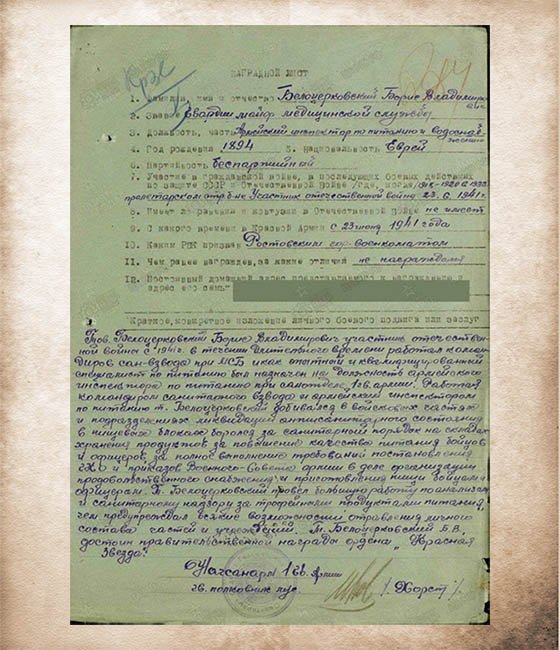 НАГРАДНОЙ ЛИСТ
1. Фамилия, имя и отчество Белоцерковский Борис Владимирович
2. Звание Гвардии майор медицинской службы
3. Должность, часть Армейский инспектор по питанию и водоснаб-
жению
4. Год рождения 1894 5. Национальность Еврей
6. Партийность беспартийный
7. Участие в гражданской войне, в последующих боевых действиях
по защите СССР и Отечественной Войне /где, когда/
Участник отечественной войны 23.6.1941г.
8. Имеет ли ранения и контузии в Отечественной войне не имеет
9. С какого времени в Красной Армии с 23 июня 1941 года
10. Каким РВК призван Ростовским гор-военкоматом
11. Чем ранее награжден, за какие отличия не награждался
12. Постоянный домашний адрес представляемого к награждению и
адрес его семьи
Краткое, конкретное изложение личного боевого подвига или заслуг
Тов. Белоцерковский Борис Владимирович участник отечествен-
ной войны с 1941г. в течении длительного времени работал коман-
диром сан-взвода при МСБ и как опытный и квалифицированный
специалист по питанию был назначен на должность армейского
инспектора по питанию при санотделе 1 гв. армии. Работая
командиром санитарного взвода и армейским инспектором
по питанию т. Белоцерковский добивался в войсковых частях
и подразделениях ликвидации антисанитарного состояния
в пищевых блоках боролся за санитарный порядок на складах
хранения продуктов за повышение качества питания бойцов
и офицеров за полное выполнение требований постановления
ГКО и приказов Военного-Совета армии в деле организации
продовольственного снабжения и приготовления пищи бойцам и
офицерам. Т. Белоцерковский провел большую работу по анализам
и санитарному надзору за трофейными продуктами питания,
чем предупреждал всякие возможности отравления личного
состава частей и учреждений. Т. Белоцерковский Б.В.
достоин правительственной награды ордена „Красная
Звезда".
Начсанарм 1 гв. Армии
гв. полковник м/с /Хорст/